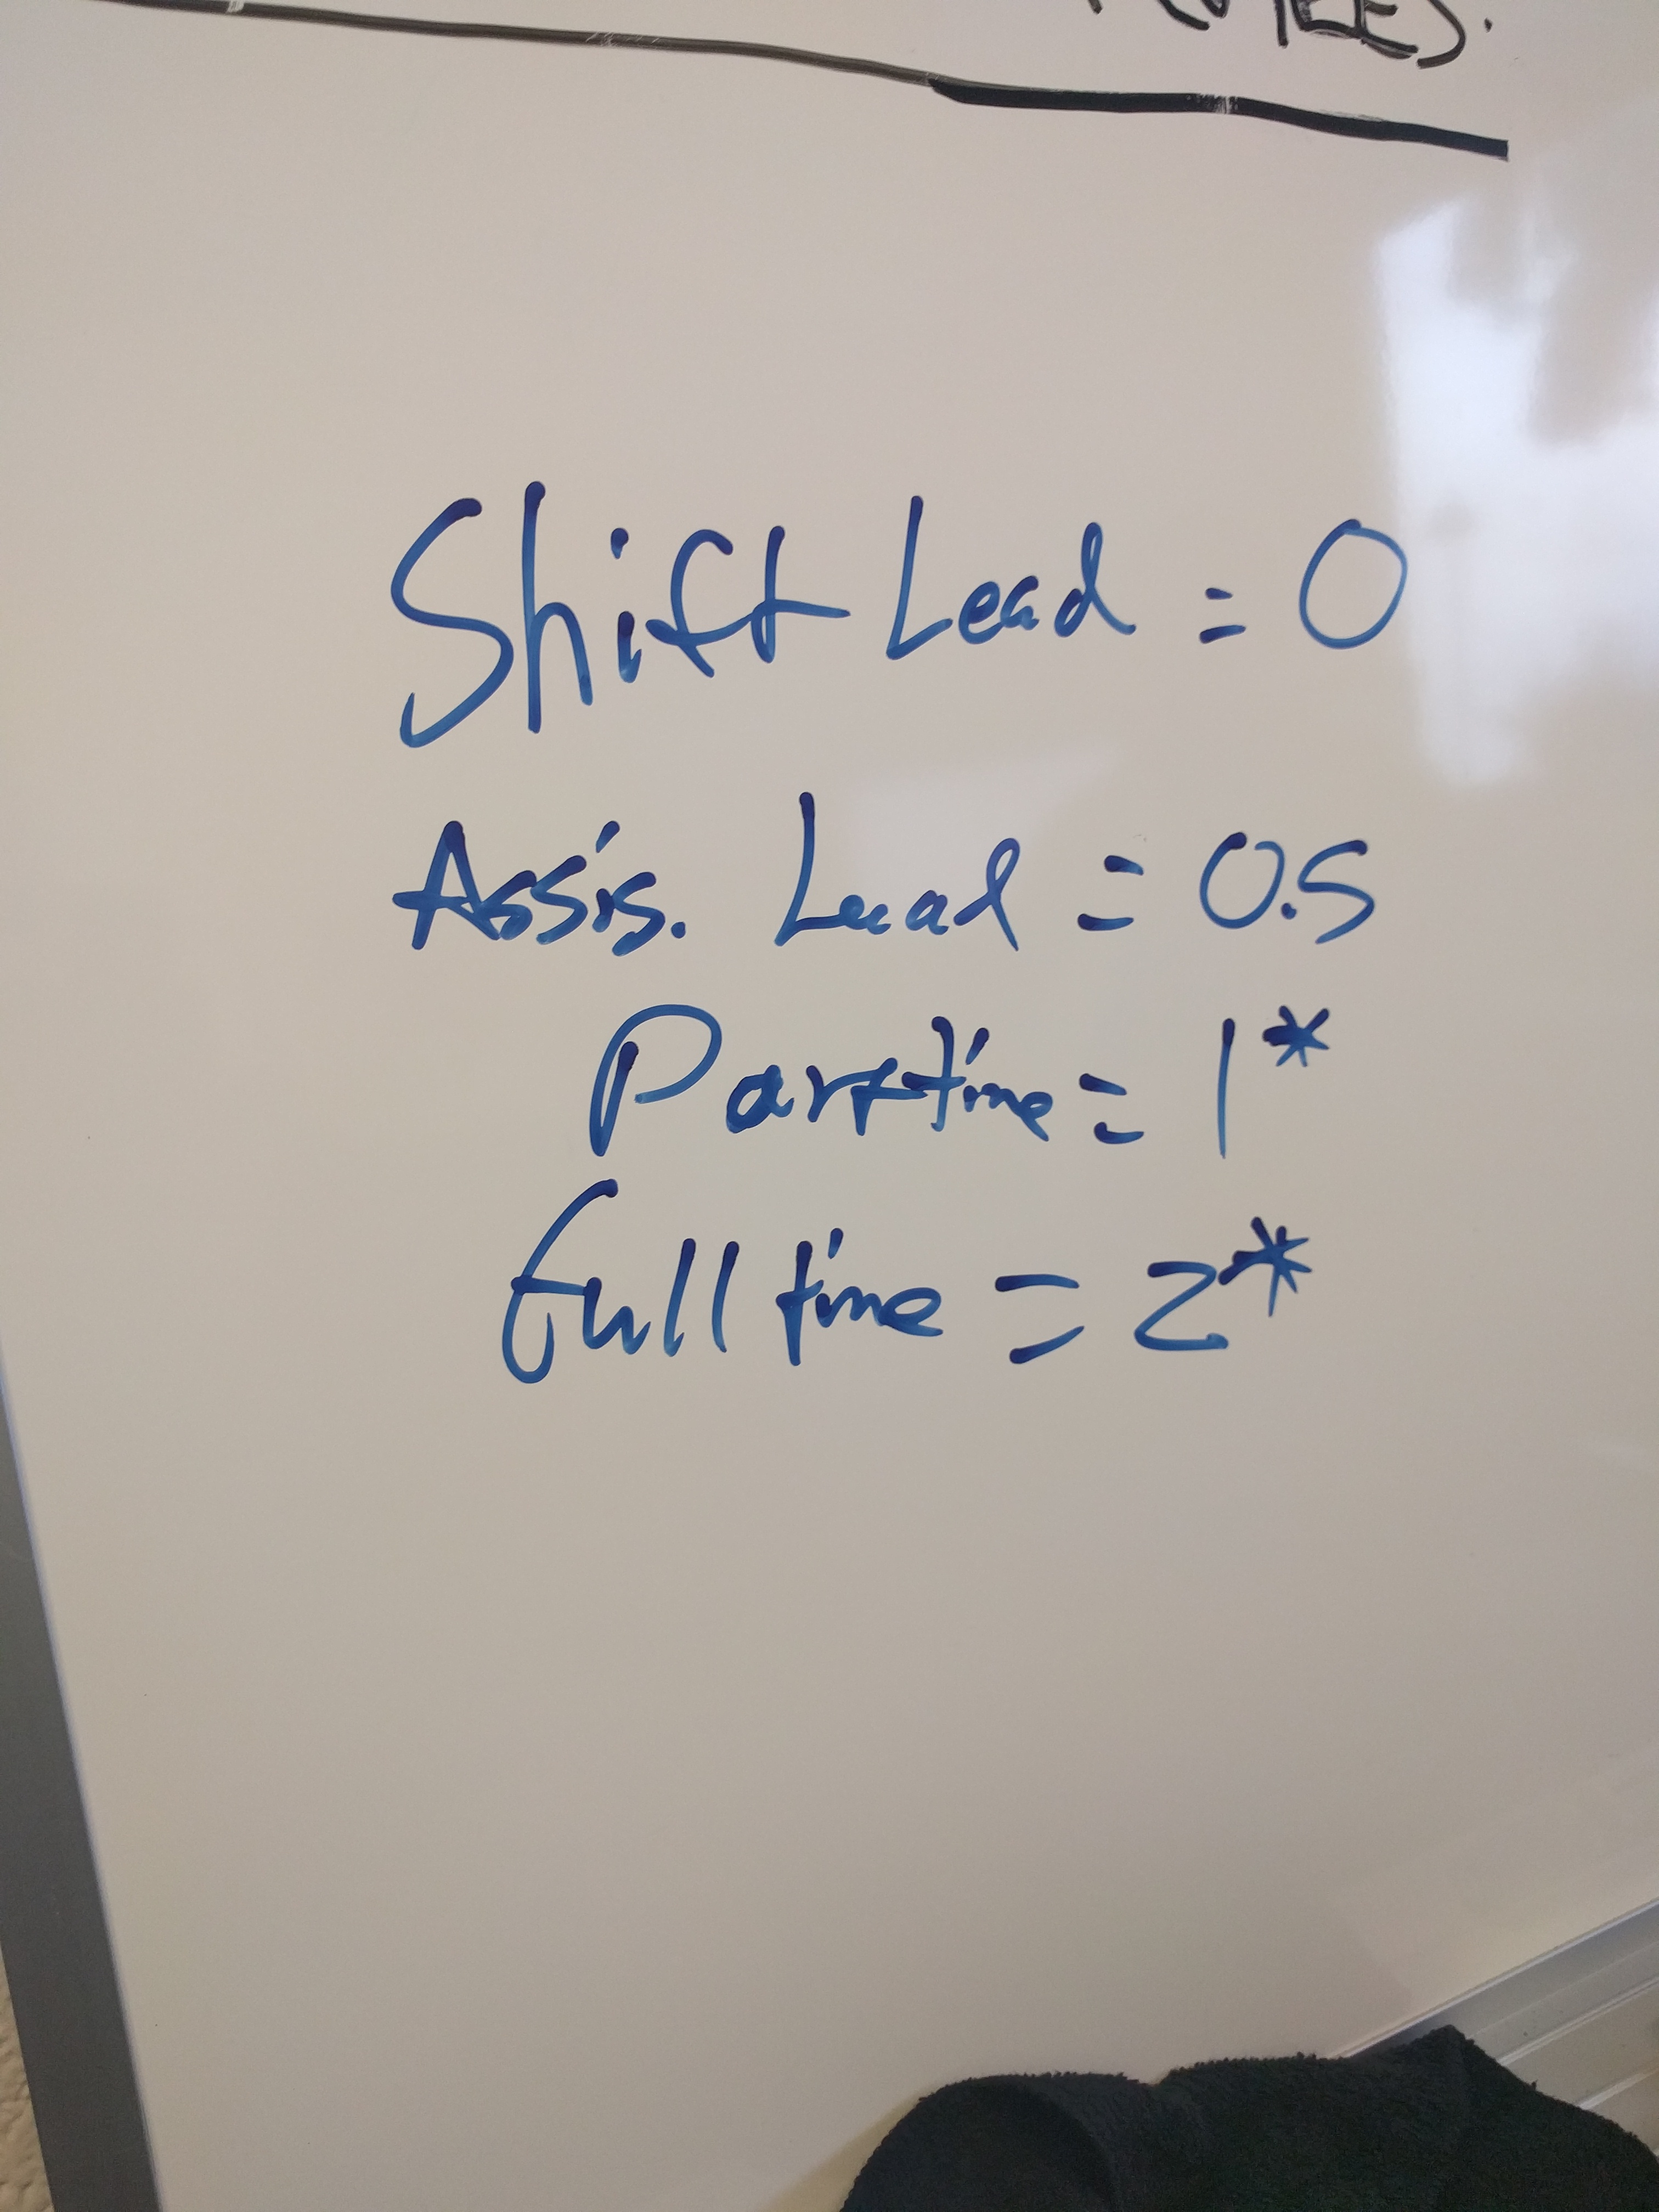 Shift Lead = 0
Assis. Lead = 0.5
Part time = 1*
Full time = 2*